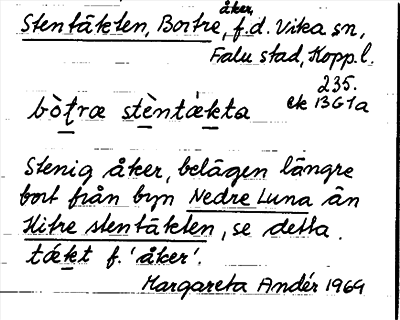 åker,
Stentäkten, Bortre, f.d. Vika sn,
Falu stad, Kopp.l.
235.
ek 13G1a
bòt̠ræ stè̠ntæ̀k̠ta
Stenig åker, belägen längre
bort från byn Nedre Luna än
Hitre stentäkten, se detta.
tǽk̠t f. 'åker'.
Margareta Andér 1969